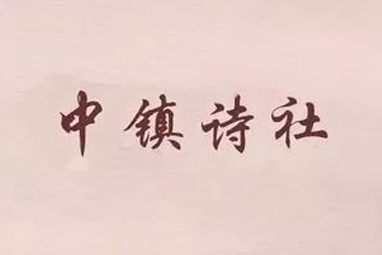 中镇诗社